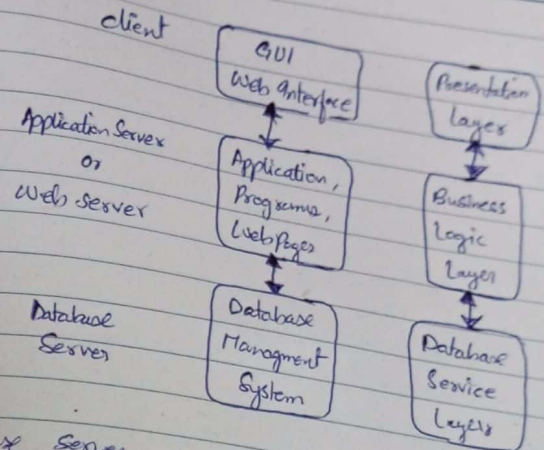 client
GUI
Web Interface
Presentation
Layer
Application Server
Or
Web Server
Application,
Programs,
WebPages
Business
Logic
Layer
Database
Server
Database
Managment
System
Database
Service
Layer